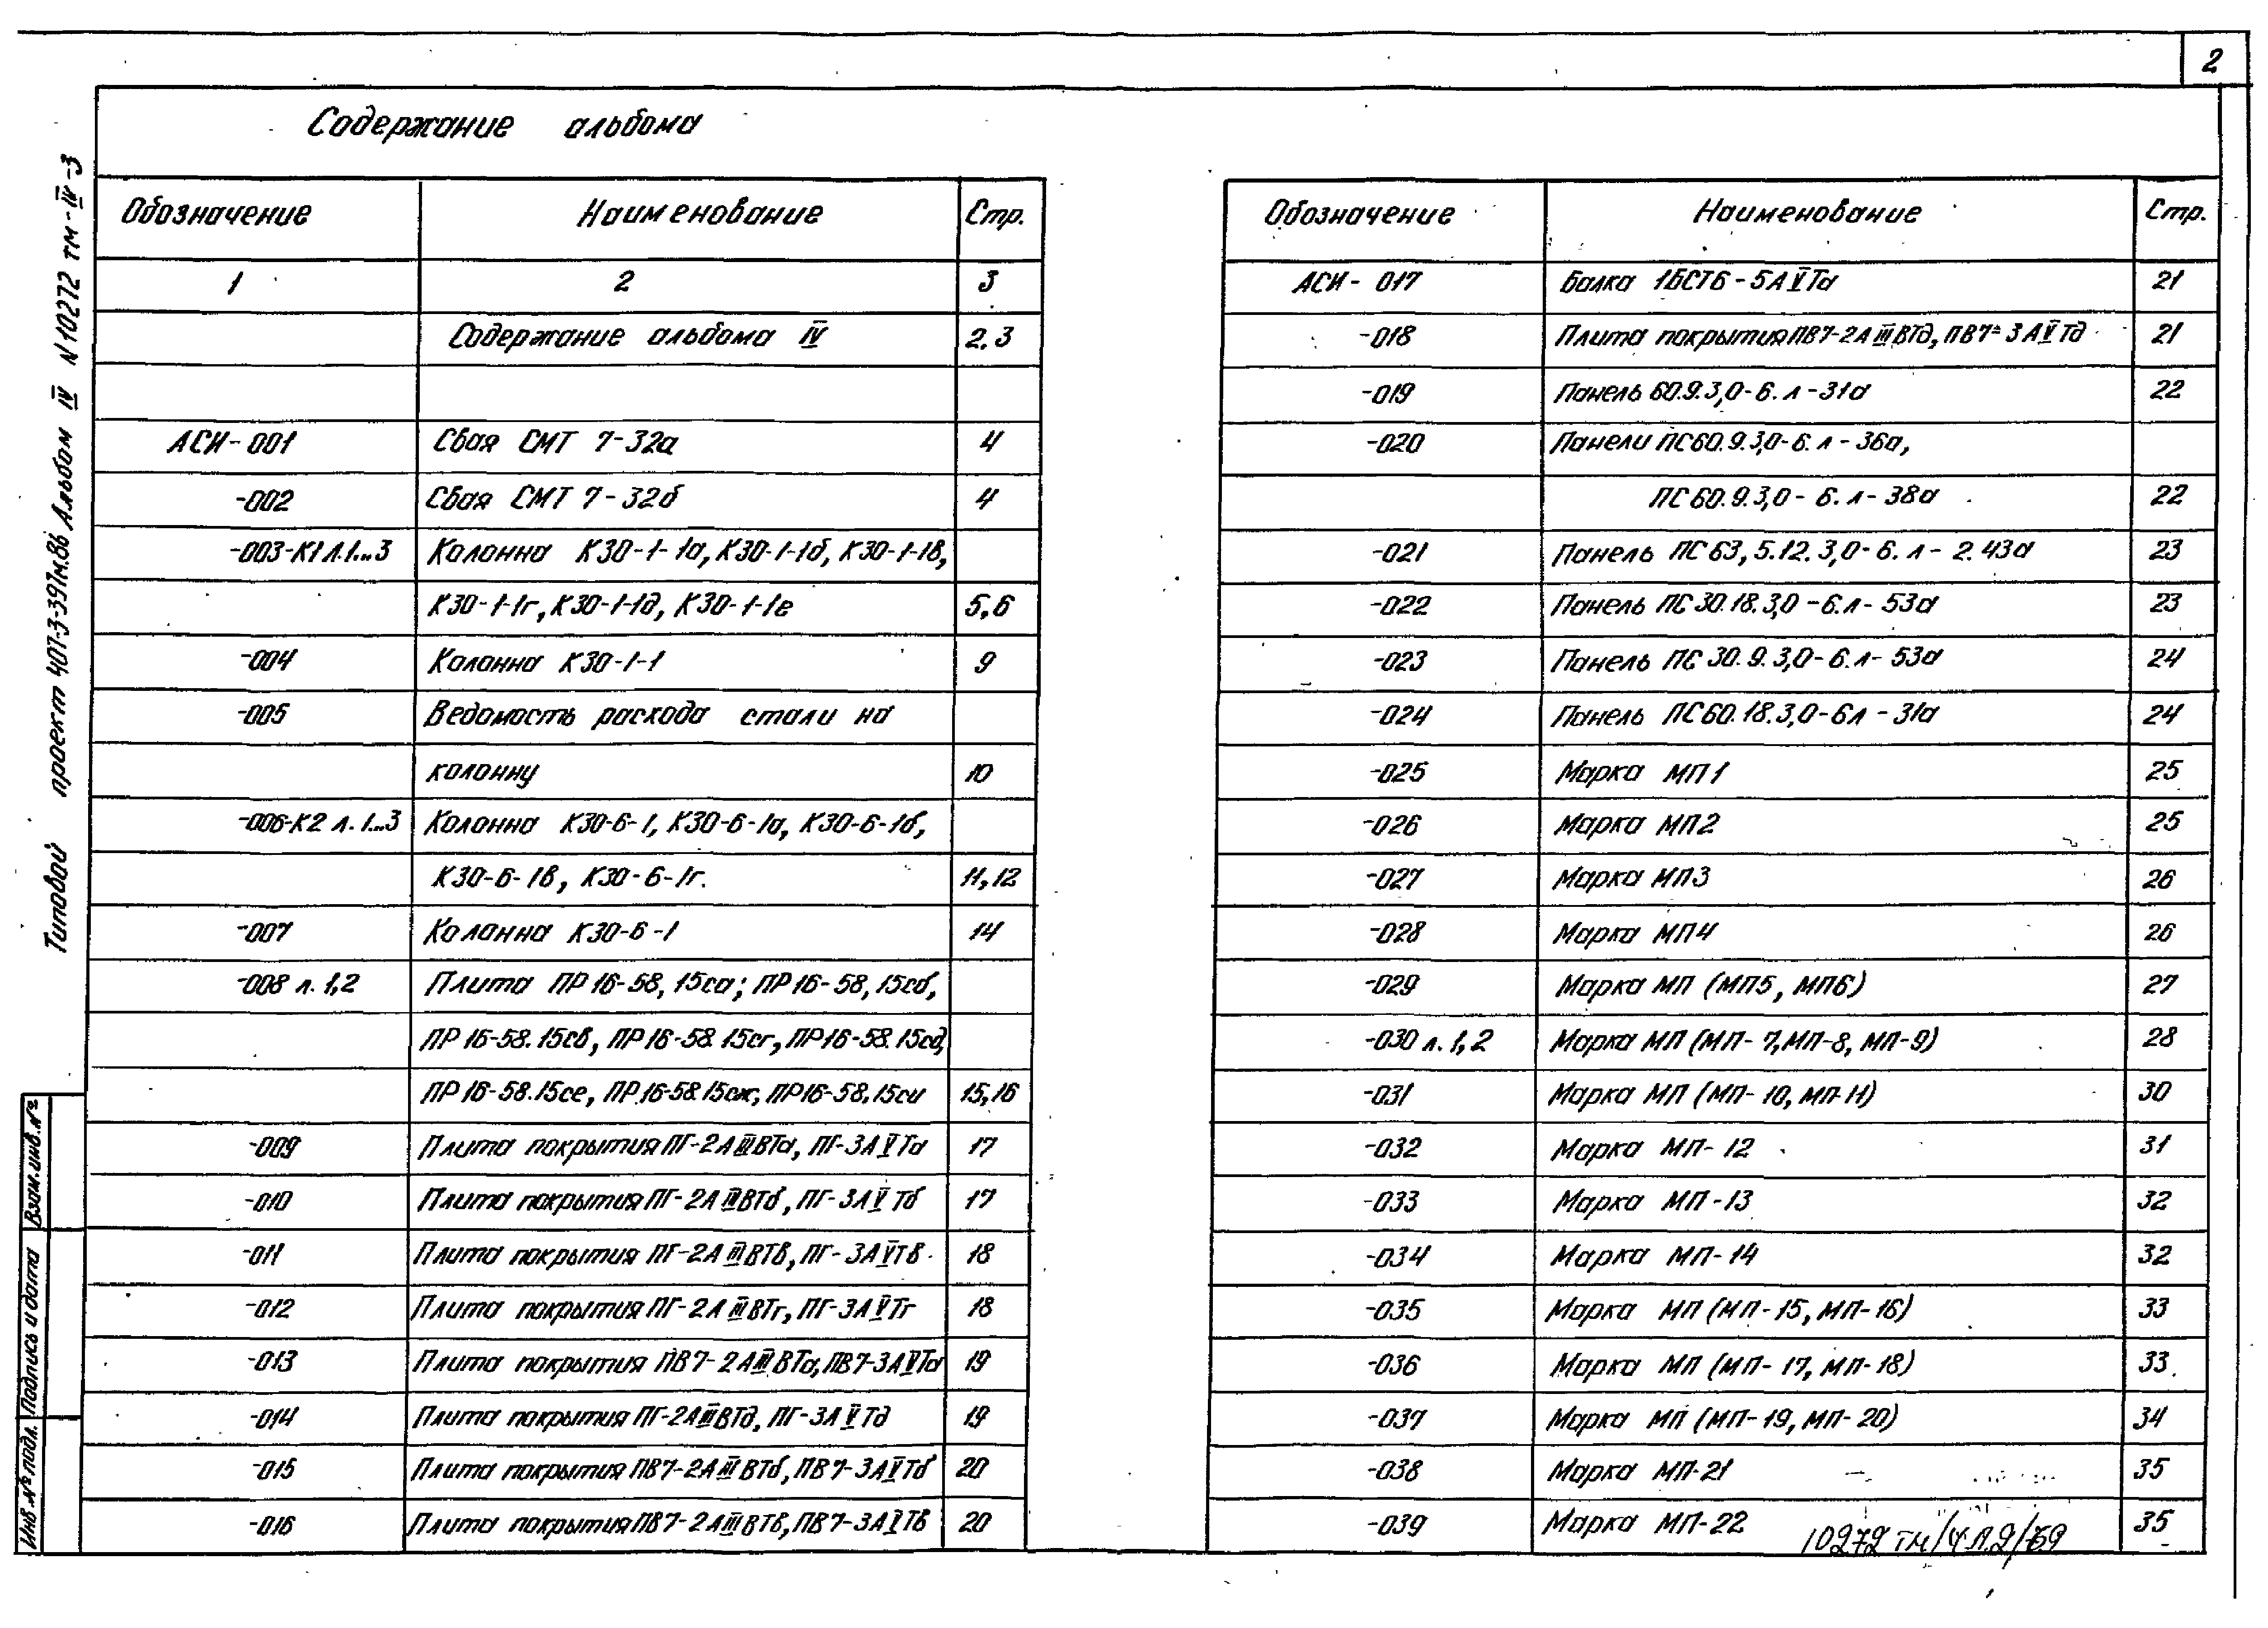 2
Содержание альбома
Обозначение Наименование Стр.
1 2 3
Содержание альбома IV 2,3
АСИ-001 Свая СМТ 7-32а 4
-002 Свая СМТ 7-32б 4
-003-К1 л.1...3 Колонна К30-1-1а, К30-1-1б, К30-1-1в,
К30-1-1г, К30-1-1д, К30-1-1е 5,6
-004 Колонна К30-1-1 9
-005 Ведомость расхода стали на
колонну 10
-006-К2 л. 1...3 Колонна К30-6-1, К30-6-1а, К30-6-1б,
К30-6-1в, К30-6-1г. 11,12
-007 Колонна К30-6-1 14
-008 л. 1,2 Плита ПР16-58,15са; ПР16-58,15сб,
ПР16-58.15св, ПР16-58.15сг, ПР16-58.15сд,
ПР16-58.15се, ПР16-58.15сж, ПР16-58.15си 15,16
-009 Плита покрытия ПГ-2АIIIВТа, ПГ-3АVТа 17
-010 Плита покрытия ПГ-2АIIIВТб, ПГ-3АVТб 17
-011 Плита покрытия ПГ-2АIIIВТв, ПГ-3АVТв 18
-012 Плита покрытия ПГ-2АIIIВТг, ПГ-3АVТг 18
-013 Плита покрытия ПВ7-2АIIIВТа, ПВ7-3АVТа 19
-014 Плита покрытия ПГ-2АIIIВТд, ПГ-3АVТд 19
-015 Плита покрытия ПВ7-2АIIIВТб, ПВ7-3АVТб 20
-016 Плита покрытия ПВ7-2АIIIВТв, ПВ7-3АVТв 20
Обозначение Наименование Стр.
АСИ-017 Балка 1БСТ6-5АVТа 21
-018 Плита покрытия ПВ7-2АIIIВТд, ПВ7-3АVТд 21
-019 Панель 60.9.3,0-6.л-31а 22
-020 Панели ПС60.9.3,0-6.л-36а,
ПС60.9.3,0-6.л-38а 22
-021 Панель ПС63,5.12.3,0-6.л-2.43а 23
-022 Панель ПС30.18.3,0-6.л-53а 23
-023 Панель ПС30.9.3,0-6.л-53а 24
-024 Панель ПС60.18.3,0-6л-31а 24
-025 Марка МП1 25
-026 Марка МП2 25
-027 Марка МП3 26
-028 Марка МП4 26
-029 Марка МП (МП5, МП6) 27
-030 л.1,2 Марка МП (МП-7, МП-8, МП-9) 28
-031 Марка МП (МП-10, МП-11) 30
-032 Марка МП-12 31
-033 Марка МП-13 32
-034 Марка МП-14 32
-035 Марка МП (МП-15, МП-16) 33
-036 Марка МП (МП-17, МП-18) 33
-037 Марка МП (МП-19, МП-20) 34
-038 Марка МП-21 35
-039 Марка МП-22 35
Типовой проект 407-3-397м.86 Альбом IV N10272 тм-IV-3
Взам.инв.№
Подпись и дата
Инв.№ подл.